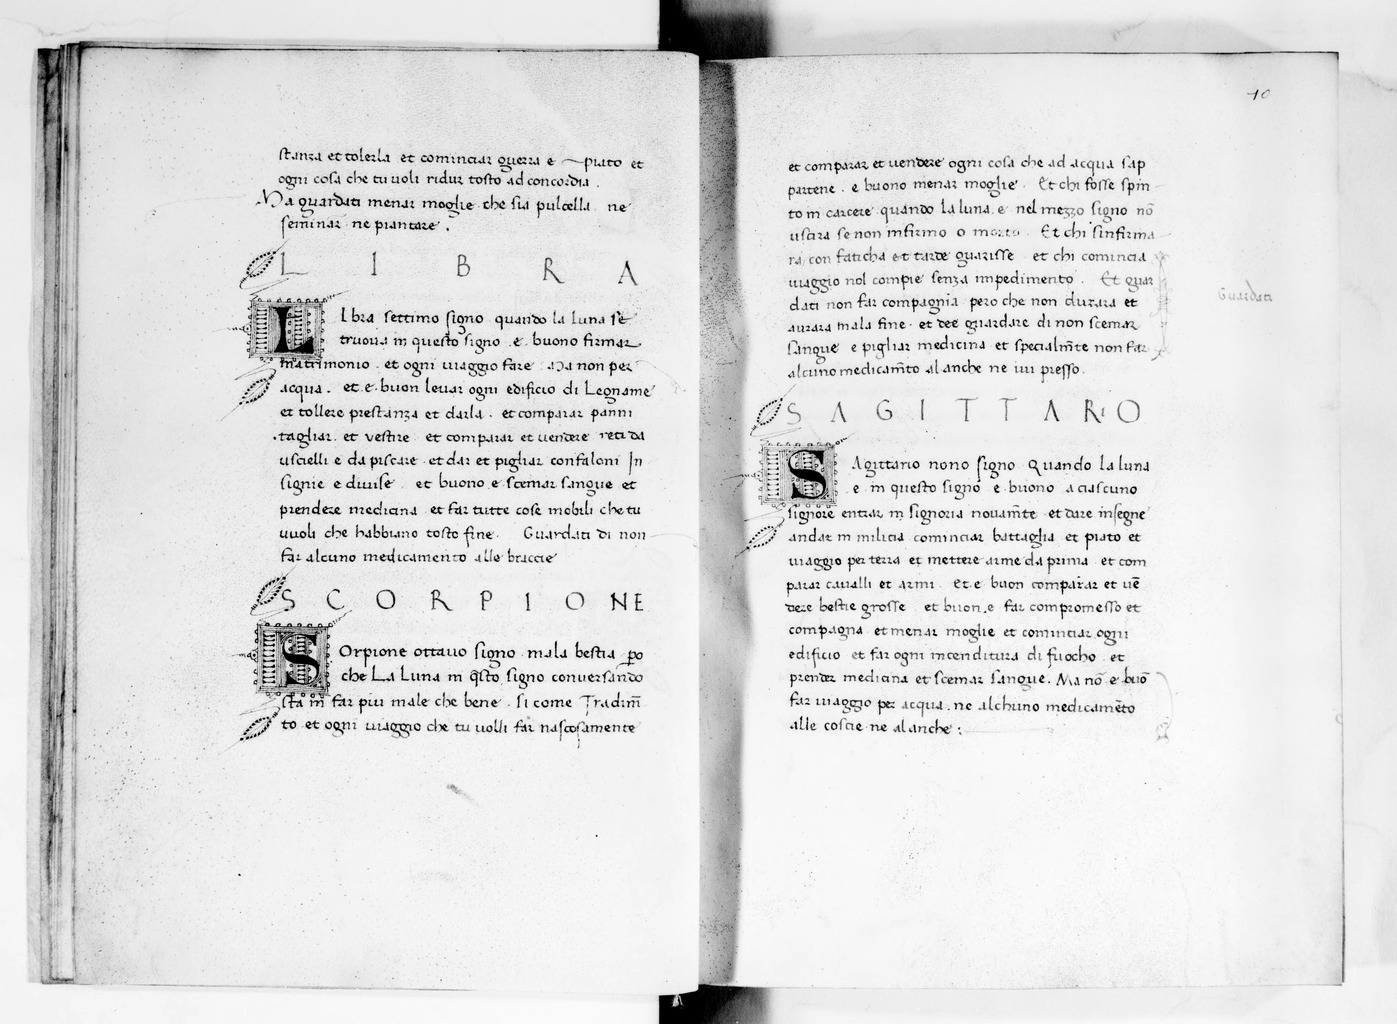 stanza et tolerla et cominciar guerra e piato et
ogni cosa che tu uoli ridur tosto ad concordia .
Ma guardati menar moglie che sia pulcella ne
seminar ne piantare .
LIBRA
LIbra settimo signo quando la luna se
truoua in questo signo . e . buono firmar
matrimonio . et ogni uiaggio fare . Ma non per
acqua . et . e . buon leuar ogni edificio di Legname
et tollere prestanza et darla . et comparar panni
tagliar . et vestire et comparar et uendere reti da
uscielli e da piscare . et dar et pigliar confaloni In
signie e diuise . et buono . e . scemar sangue et
prendere medicina . et far tutte cose mobili che tu
uuoli che habbiano tosto fine . Guardati di non
far alcuno medicamento alle braccie
SCORPIONE
SOrpione ottauo signo . mala bestia . ꝑo
che La Luna in q̃sto signo conuersando
sta in far piu male che bene . si come Tradim̃
to . et ogni uiaggio che tu uolli far nascosamente
10
et comparar et uendere ogni cosa che ad acqua sap
partene . e buono menar moglie . Et chi fosse spin
to in carcere quando la luna . e . nel mezzo signo nõ
uscira se non infirmo o morto . Et chi sinfirma
ra con faticha et tarde guarisse et chi comincia
uiaggio nol compie senza impedimento . Et guar
dati non far compagnia pero che non durara et
aurara mala fine . et dee guardare di non scemar
sangue e pigliar medicina et specialm̃te non far
alcuno medicam̃to al anche ne iui presso .
Guardati
SAGITTARIO
SAgittario nono signo Quando la luna
. e . in questo signo . e . buono a ciascuno
signore entrar in signoria nouam̃te . et dare insegne
andar in milicia cominciar battaglia et piato et
uiaggio per terra et mettere arme da prima . et com
parar caualli et armi . Et . e . buon comparar et uẽ
dere bestie grosse . et buon . e far compromesso et
compagna . et menar moglie et cominciar ogni
edificio et far ogni incenditura di fuocho . et
prender medicina et scemar sangue . Ma nõ e buõ
far uiaggio per acqua . ne alchuno medicamẽto
alle coscie ne al anche :